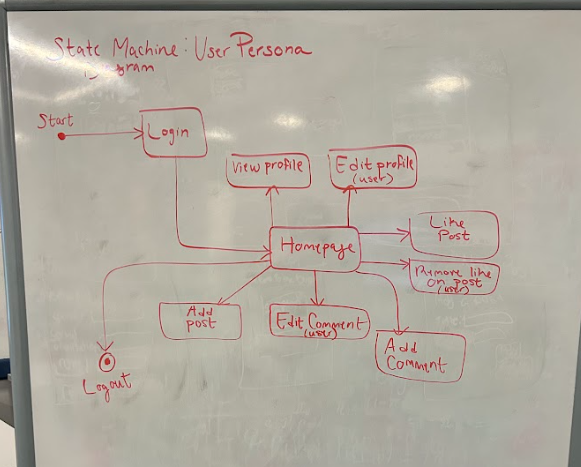 State Machine: User Persona
Start
Login
View profile
Edit profile
(user)
Homepage
Like
Post
Remove like
on post
(user)
Add
post
Edit Comment
(user)
Add
Comment
Logout